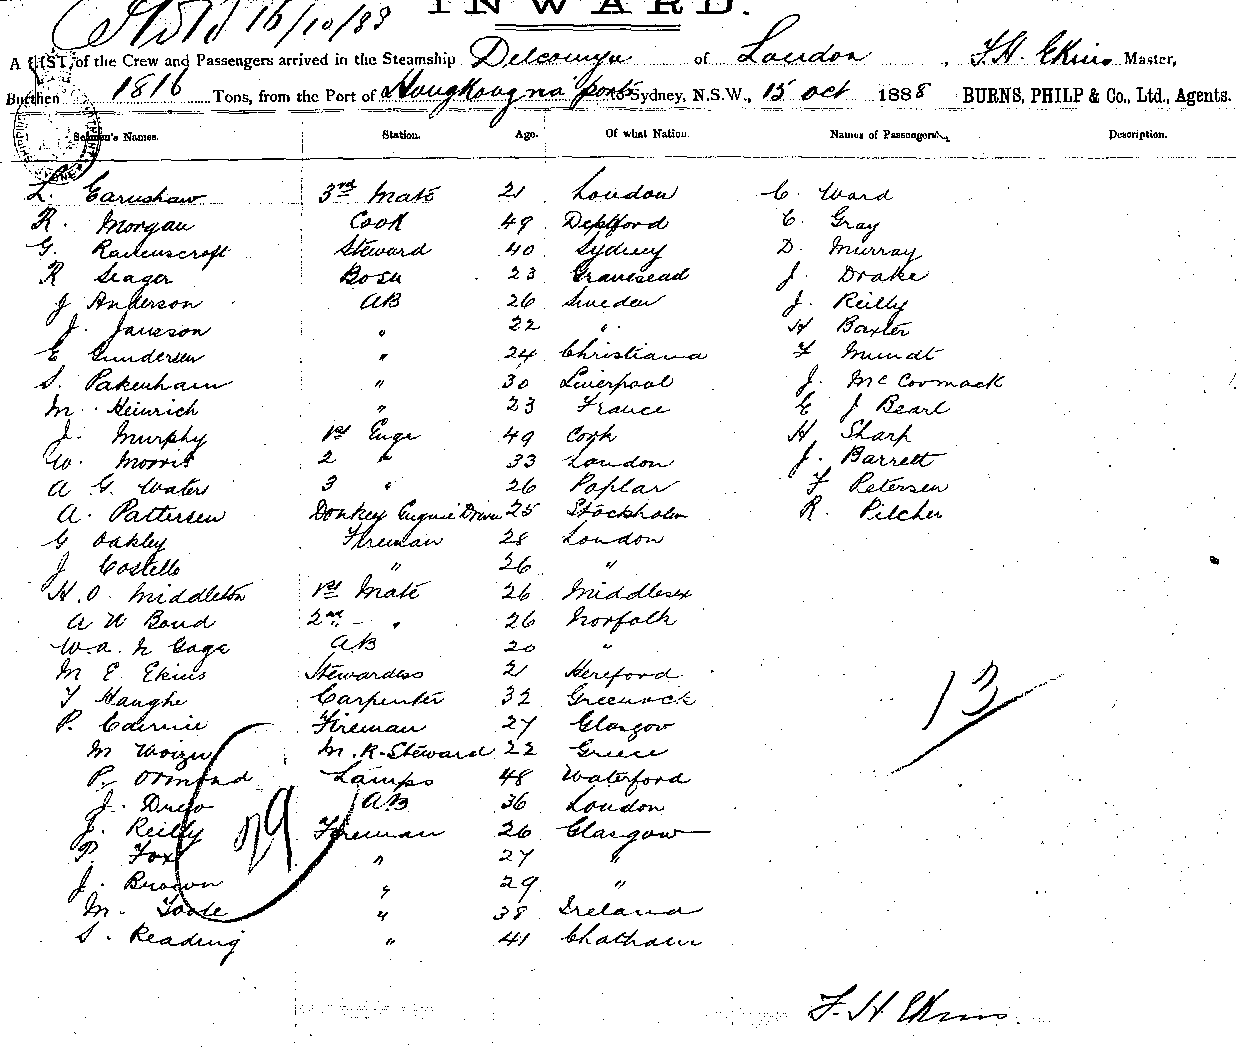 INWARD.
16/10/88
A LIST, of the Crew and Passengers arrived in the Steamship Delcomyn of London, F.H. Ekins Master,
Burthen 1816 Tons, from the Port of Hongkong via ports to Sydney, N.S.W., 15 Oct 1888 BURNS, PHILP & Co., Ltd., Agents.
Seamen's Names. Station. Age. Of what Nation. Names of Passengers. Description.
L. Earnshaw 3rd Mate 21 London C. Ward
R. Morgan Cook 49 Deptford C. Gray
G. Ravenscroft Steward 40 Sydney D. Murray
R Seager Bosn 23 Gravesend J. Drake
J Anderson AB 26 Sweden J. Reilly
J. Jansson " 22 " H Baxter
E Gundersen " 24 Christiana F Mundt
S. Pakenham " 30 Liverpool J. McCormack
M. Heinrich " 23 France E J Bearl
J. Murphy 1st Engr 49 Cork H Sharp
W. Morris 2 " 33 London J. Barrett
A G. Water 3 " 26 Poplar F Petersen
A. Pattersen Donkey Engine Driver 25 Stockholm R. Pilcher
G Oakley Fireman 28 London
J Costello " 26 "
H.O. Middleton 1st Mate 26 Middlesex
A W Bond 2nd " 26 Norfolk
W.A. N Gage AB 20 "
M E Ekins Stewardess 21 Hereford
T Haughe Carpenter 32 Greenock
P. Cairnie Fireman 27 Glasgow
M M.R. Steward 22 Greece
P. Ormond Lamps 48 Waterford
J. Drew AB 36 London
J. Reilly Fireman 26 Glasgow
P. Fox " 27 "
J. Brown " 29 "
M. Toole " 38 Ireland
S. Reading " 41 Chatham
29
13
F. H Ekins